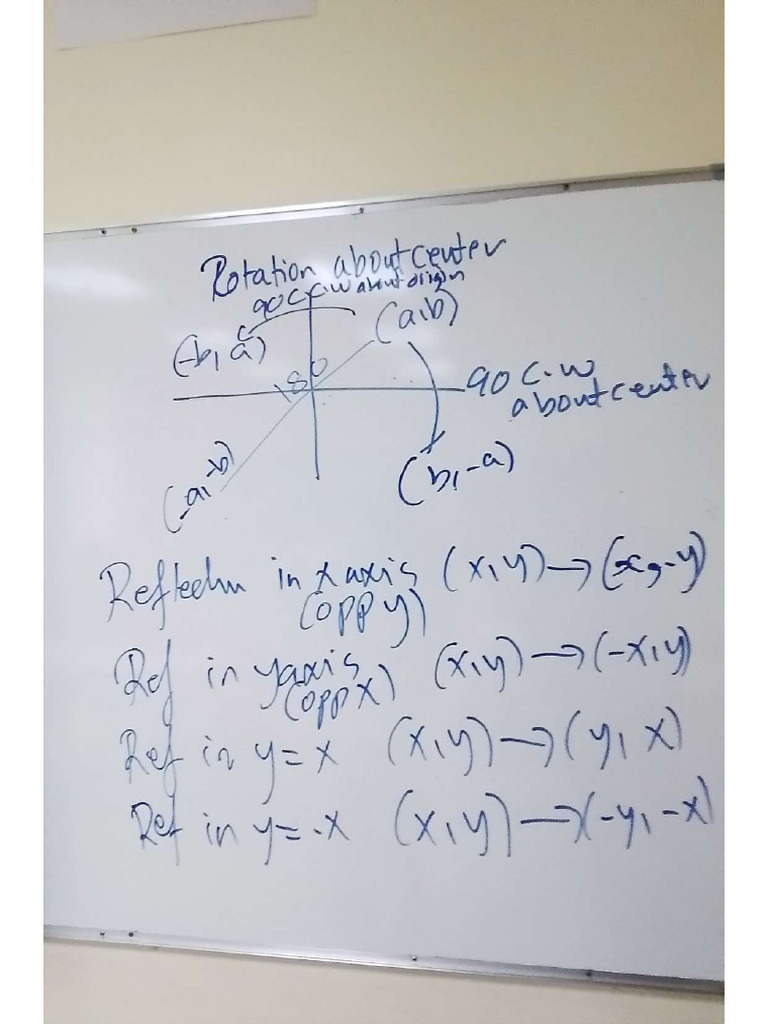 Rotation about center
90 C.C.W about origin
(a,b)
(-b, a)
180
90 C.W
about center
(-a,-b)
(b,-a)
Reflection in x axis (x,y) → (x,-y)
(opp y)
Ref in yaxis (x,y) → (-x,y)
(opp x)
Ref in y=x (x,y) → (y, x)
Ref in y=-x (x,y) → (-y,-x)